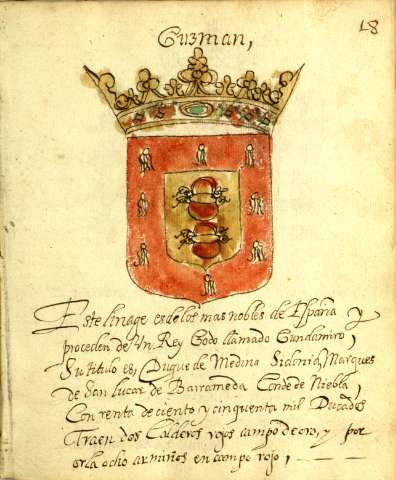 18
Guzman,
Este linage es de los mas nobles de España y
proceden de Un Rey Godo llamado Gundamiro,
Su titulo es, Duque de Medina Sidonia, Marques
de San Lucar de Barrameda Conde de Niebla,
Con renta de ciento y cinquenta mil Ducados
Traen dos Calderas rojas campo de oro, y por
orla ocho armiños en campo rojo,